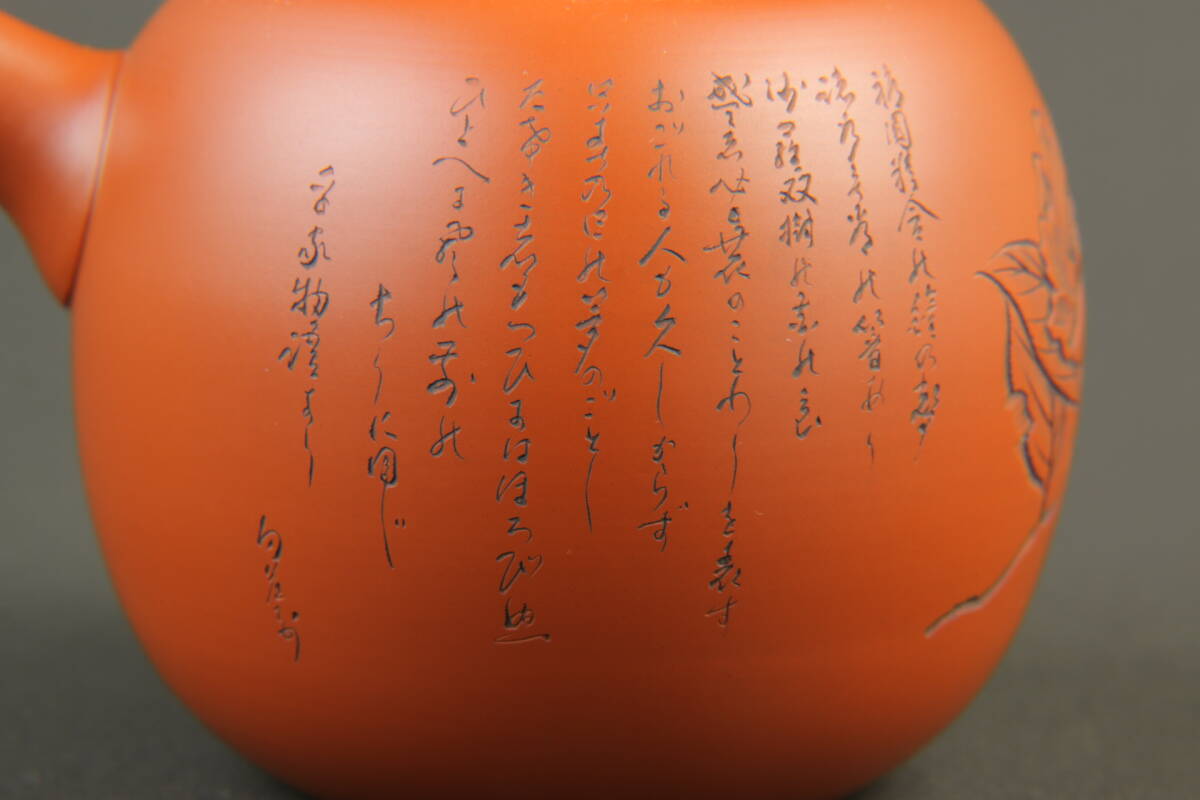 祇園精舎の鐘の声
諸行無常の響あり
沙羅双樹の花の色
盛者必衰のことわりを表す
おごれる人も久しからず
只春の夜の夢のごとし
たけき者もつひにはほろびぬ
ひとへに風の前の
ちりに同じ
平家物語より